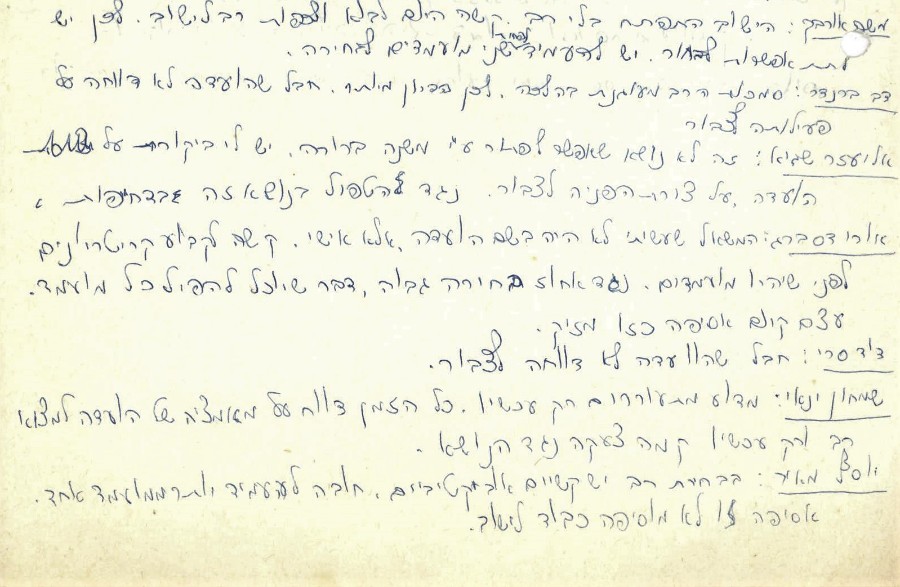 משה אורבך: הישוב התפתח בלי רב. קשה היום לבוא ולכפות רב לישוב. לכן יש
לתת אפשרות לבחור. יש להעמיד לפחות שני מועמדים לבחירה.
דב ברנדר: סמכות הרב מעוגנת בהלכה. לכן בזיון מיותר. חבל שהועדה לא דווחה על
פעילותה לצבור
אליעזר שגיא: זה לא נושא שאפשר לפתור ע"י משנה ברורה. יש לי ביקורת על
הועדה, על צורת הפניה לצבור. נגד להטפול בנושא זה בדחיפות.
אורי דסברג: המשאל שעשיתי לא היה בשם הועדה, אלא אישי. קשה לקבוע קריטריונים
לפני שיהיו מועמדים. נגד אחוז בחירה גבוה, דבר שיוכל להפיל כל מועמד.
עצם קיום אסיפה כזו מזיק.
דוד סרי: חבל שהוועדה לא דווחה לצבור.
שמחון ינאי: מדוע מתעוררים רק עכשיו. כל הזמן דווח על מאמציה של הועדה למצוא
רב ורק עכשיו קמה צעקה נגד הנושא.
מאיר: בבחירת רב יש קשיים אובייקטיביים. חובה להעמיד יותר ממועמד אחד.
אסיפה זו לא מוסיפה כבוד לישוב.